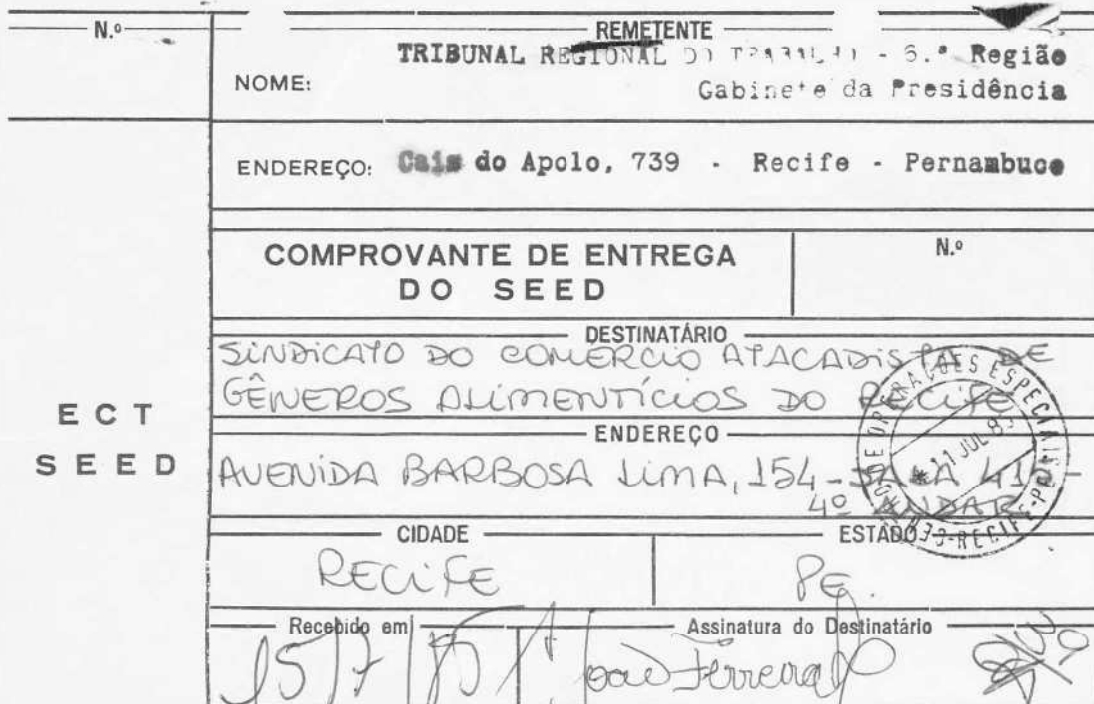 N.º
REMETENTE
TRIBUNAL REGIONAL DO TRABALHO - 6.ª Região
NOME: Gabinete da Presidência
ENDEREÇO: Cais do Apolo, 739 - Recife - Pernambuco
COMPROVANTE DE ENTREGA
DO SEED
N.º
DESTINATÁRIO
SINDICATO DO COMERCIO ATACADISTA DE
GÊNEROS ALIMENTÍCIOS DO RECIFE
ECT
SEED
ENDEREÇO
AVENIDA BARBOSA LIMA, 154 - SALA
4º ANDAR
CIDADE
ESTADO
RECIFE
PE.
Recebido em
Assinatura do Destinatário
15/7/85
João Ferreira
OPERAÇÕES ESPECIAIS
11 JUL 85
RECIFE